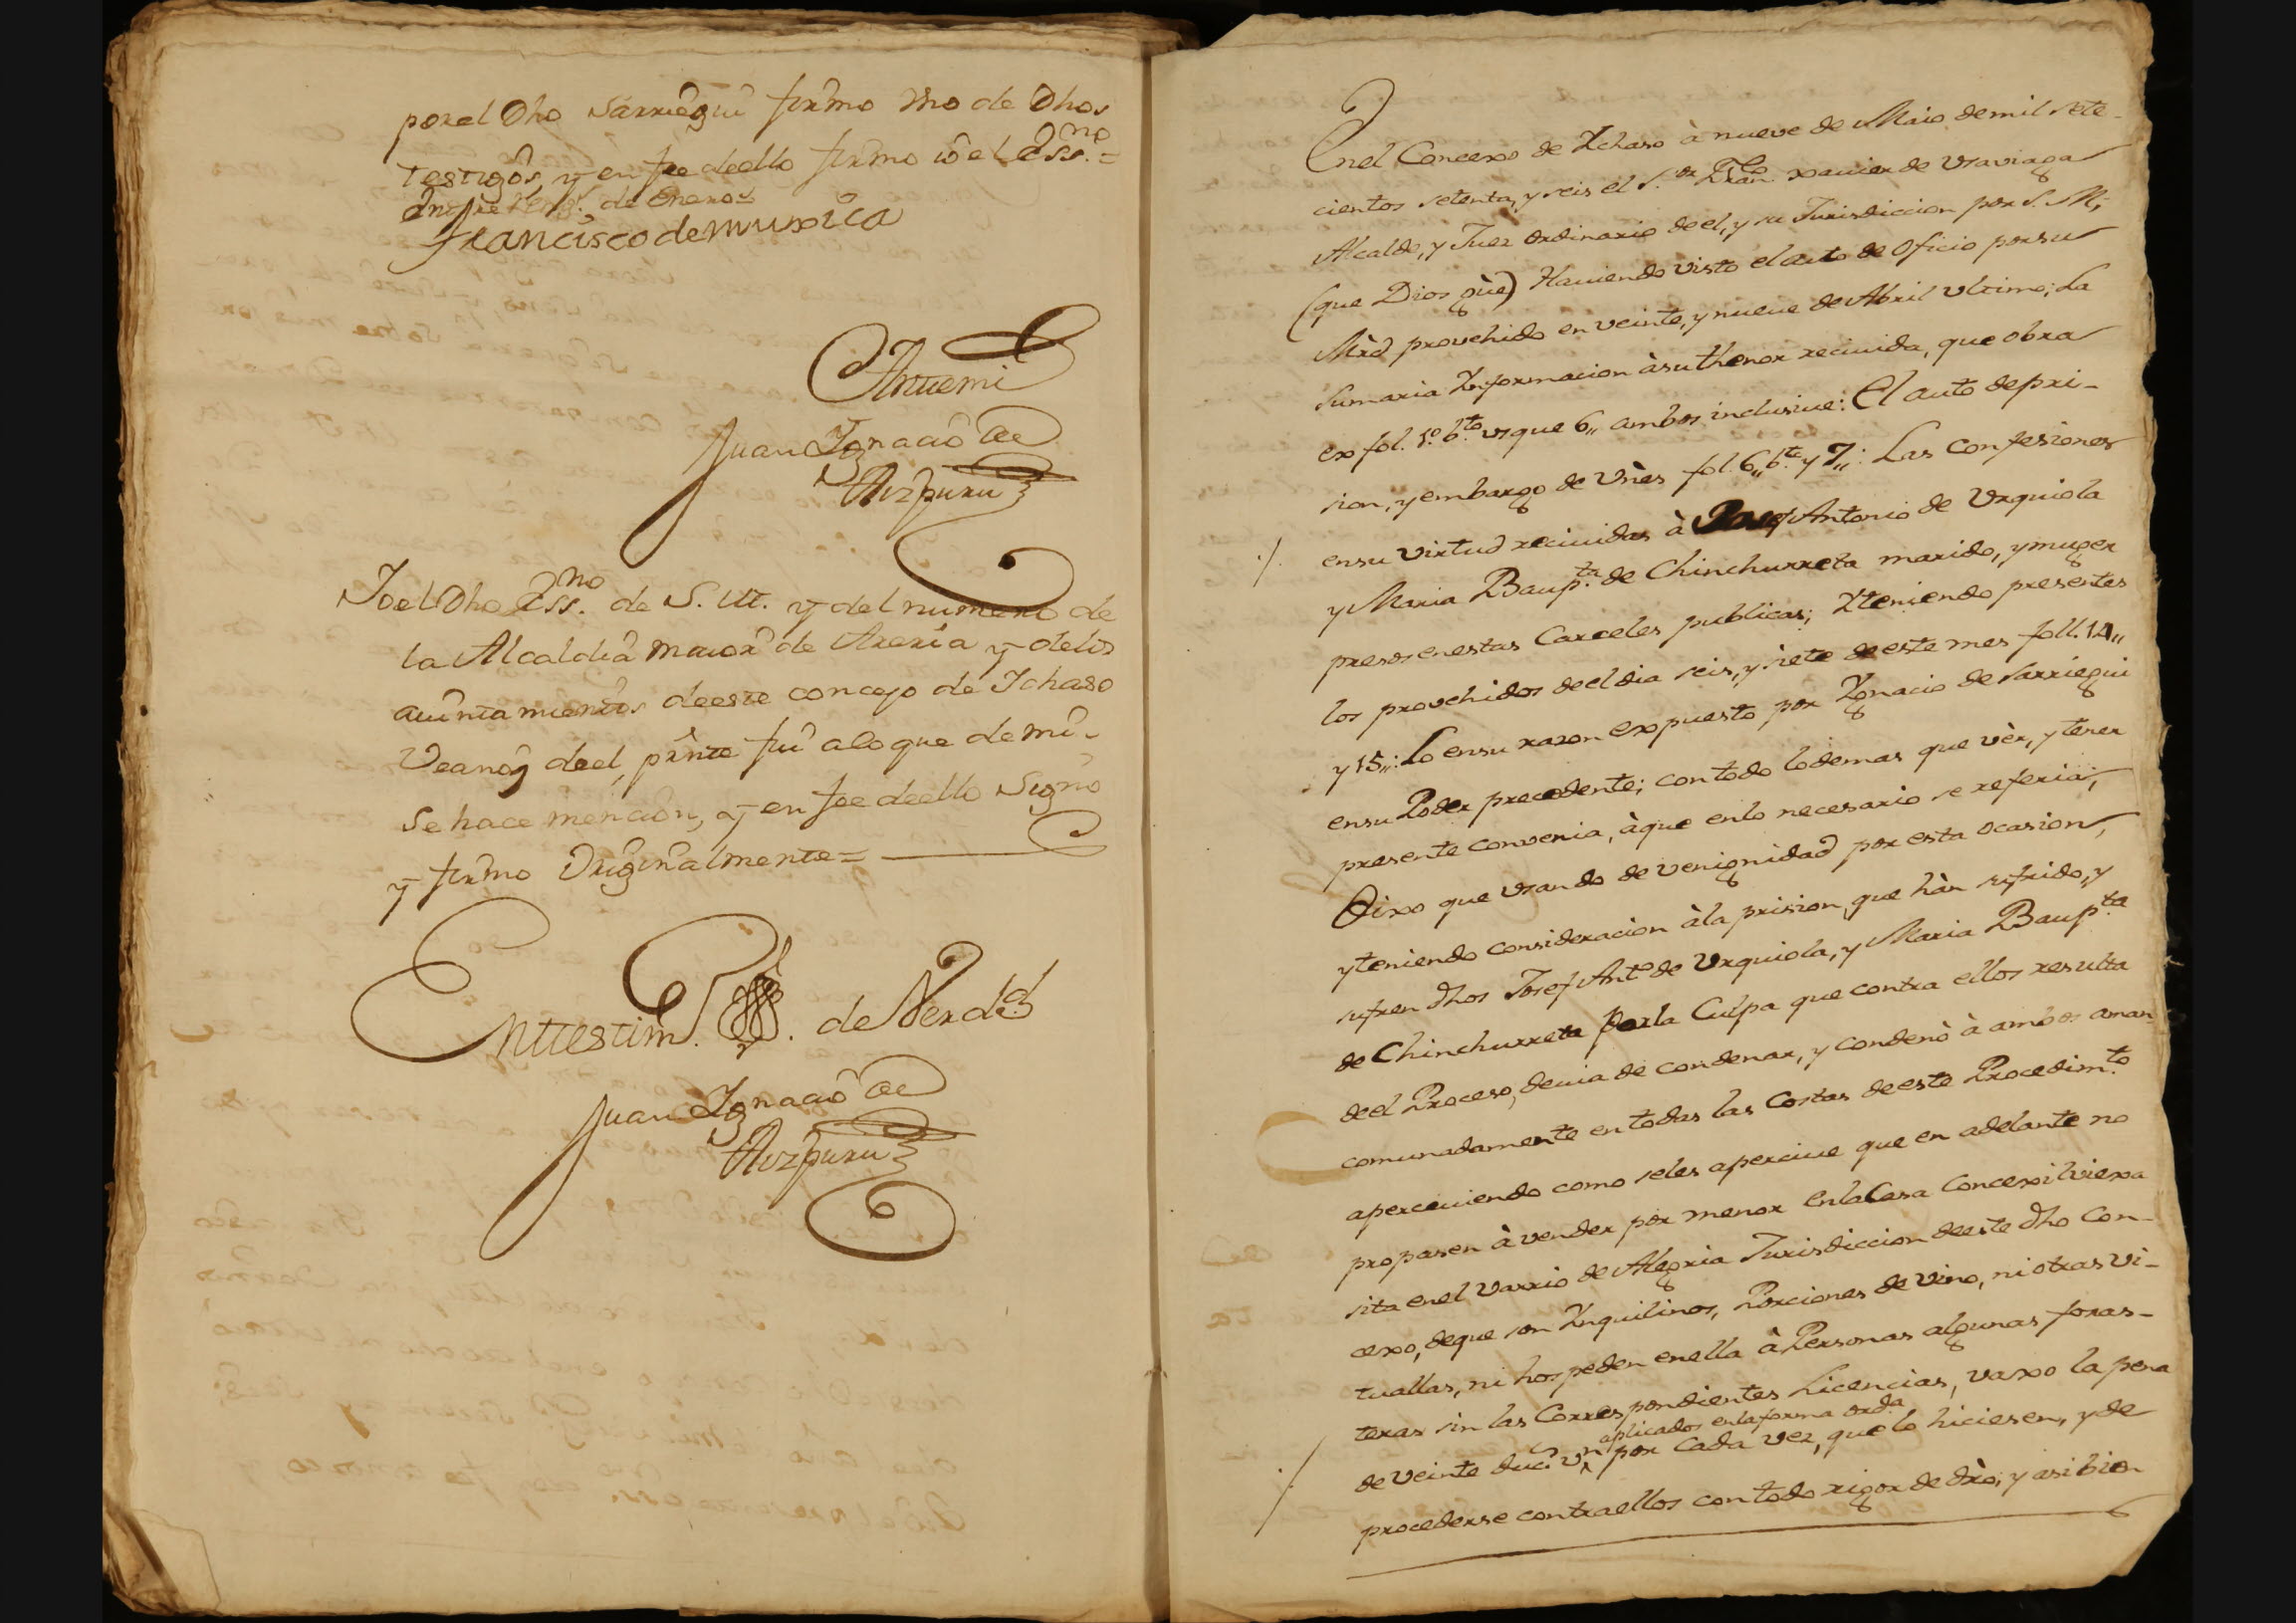 por el Dho Sarriegui firmo Vno de Dhos
testigos, y en fee de ello firmo io el Ess.no =
Entre reng.s de enero =
Francisco de muxica
Antemi
Juan Ignacio de
Aizpuru
Io el Dho Ess.no de S. M. y del numero de
la Alcaldia maior de Areria y de los
aiuntamientos de este concejo de Ichaso
Veanos de el, pnte fui a lo que de mi
se hace mencion, y en fee de ello Signo
y firmo Originalmente =
En ttestim.o de Verd.d
Juan Ignacio de
Aizpuru
En el Concexo de Ychaso à nueve de Maio de mil sete-
cientos setenta, y seis el S.or Fran.co xavier de Vsaviaga
Alcalde, y Juez ordinario de el, y su Jurisdiccion por S. M,
(que Dios gùe) Haviendo visto el auto de Oficio por su
Mrd provehido en veinte, y nueve de Abril vltimo; La
Sumaria Ynformacion à su thenor recivida, que obra
ex fol. 1.o b.to vsque 6,, ambos inclusive: El auto de pri-
sion, y embargo de Vnes fol. 6,, b.to y 7,,: Las Confesiones
en su virtud recividas à Josef Antonio de Vrquiola
y Maria Baup.ta de Chinchurreta marido, y muger
presos en estas Carceles publicas; Y teniendo presentes
los provehidos de el dia seis, y siete de este mes foll. 14,,
y 15,,: Lo en su razon expuesto por Ygnacio de Sarriegui
en su Poder precedente; con todo lo demas que vèr, y tener
presente convenia, à que en lo necesario se referia;
Dixo que vsando de venignidad por esta ocasion,
y teniendo consideracion à la prision, que hàn sufrido, y
sufren dhos Josef Ant.o de Vrquiola, y Maria Baup.ta
de Chinchurreta por la Culpa que contra ellos resulta
de el Proceso, devia de condenar, y condenò à ambos aman-
comunadamente en todas las Costas de este Procedim.to
aperceviendo como se les apercive que en adelante no
propasen à vender por menor en la Casa Concexil viexa
sita en el Varrio de Alegria Jurisdiccion de este dho Con-
cexo, de que son Ynquilinos, Porciones de vino, ni otras vi-
tuallas, ni hospeden en ella à Personas algunas foras-
teras sin las Correspondientes Licencias, vaxo la pena
aplicados en la forma ord.a
de veinte duc.s v.n por cada vez, que lo hiciesen, y de
procederse contra ellos con todo rigor de drò; y asi bien